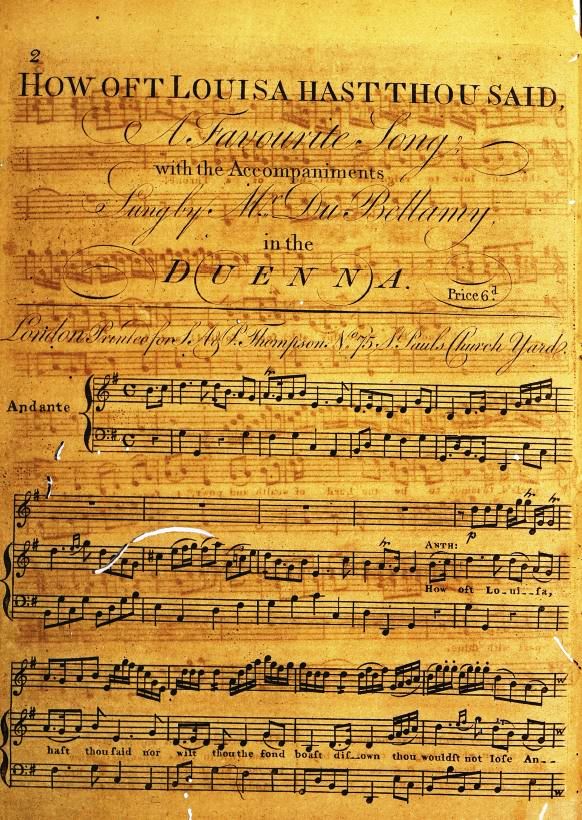 2
HOW OFT LOUISA HAST THOU SAID,
A Favourite Song,
with the Accompaniments
Sung by Mrs. Du Bellamy,
in the
DUENNA.
Price 6d.
London Printed for S. A. & P. Thompson. No. 75 St. Pauls Church Yard.
Andante
tr
tr tr
p
ANTH:
How oft Lo-ui-ſa,
haſt thou ſaid nor wilt thou the fond boaſt diſ-own thou wouldſt not loſe An--